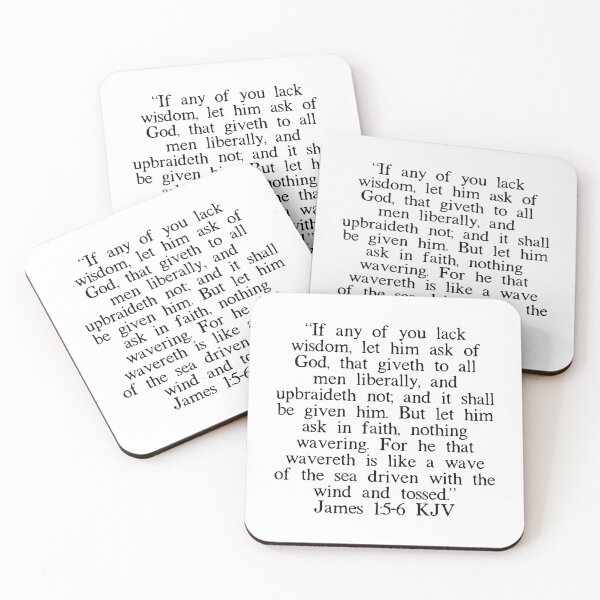 “If any of you lack
wisdom, let him ask of
God, that giveth to all
men liberally, and
upbraideth not; and it shall
be given him. But let
nothing
he that
“If any of you lack
wisdom, let him ask of
God, that giveth to all
men liberally, and
upbraideth not; and it shall
be given him. But let him
ask in faith, nothing
wavering. For he that
wavereth is like a wave
of the sea driven with the
“If any of you lack
wisdom, let him ask of
God, that giveth to all
men liberally, and
upbraideth not; and it shall
be given him. But let him
ask in faith, nothing
wavering. For he
wavereth is like a
of the sea driven
wind and
James 1:5-6
“If any of you lack
wisdom, let him ask of
God, that giveth to all
men liberally, and
upbraideth not; and it shall
be given him. But let him
ask in faith, nothing
wavering. For he that
wavereth is like a wave
of the sea driven with the
wind and tossed.”
James 1:5-6 KJV